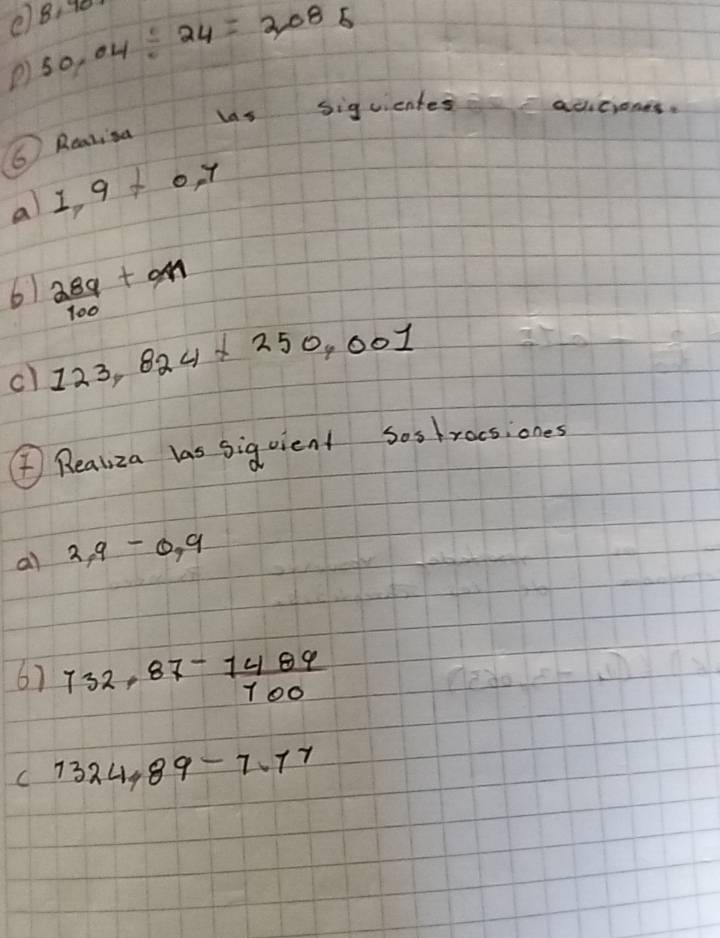 e) 8,90
p) 50,04 ÷ 24 = 2,085
6 Realisa las siguientes adiciones.
a) 1,9 + 0,7
b) 289/100 +
c) 123,824 + 250,001
7 Realiza las siguient sostrocsiones
a) 2,9 - 0,9
b) 732,87 - 1489/100
c 1324,89 - 7.77